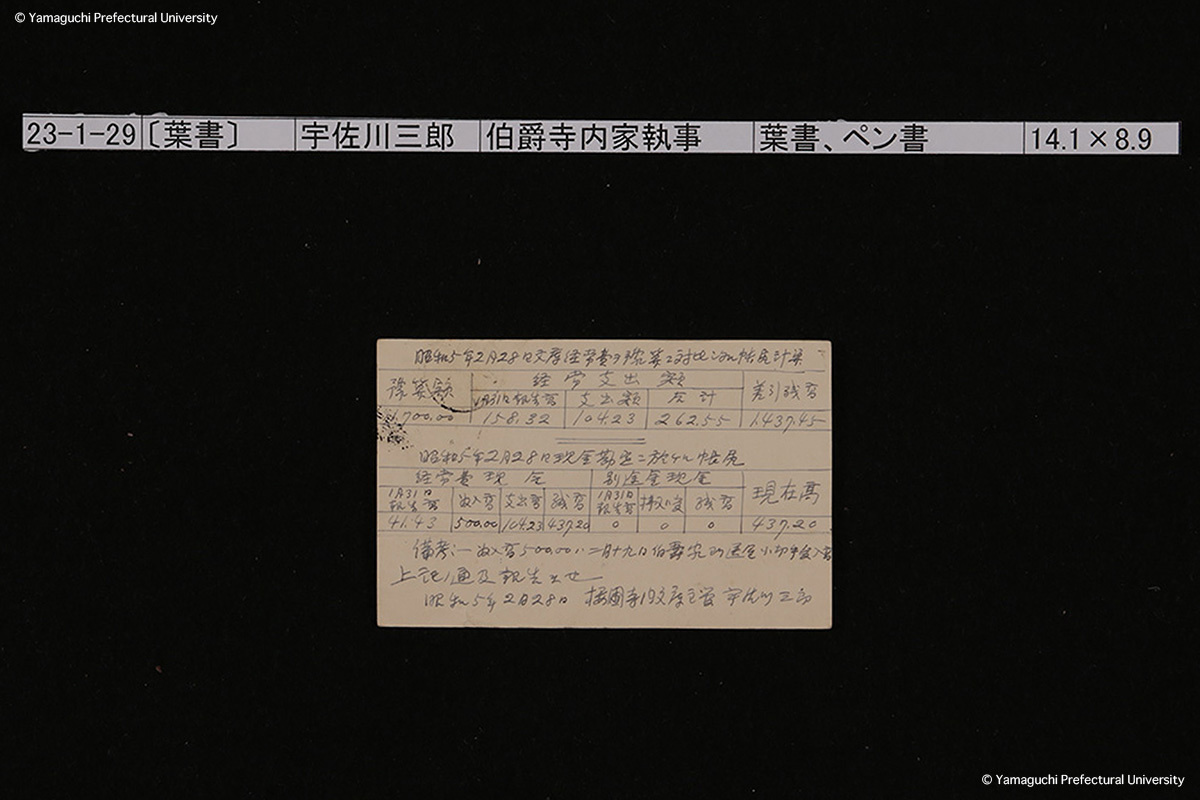 © Yamaguchi Prefectural University
23-1-29 〔葉書〕 宇佐川三郎 伯爵寺内家執事 葉書、ペン書 14.1×8.9
昭和5年2月28日文庫経常費ヲ豫算ニ対比シタル帳尻計算
豫算額 経常支出額 差引残高
1月31日報告高 支出額 合計
1,700.00 158.32 104.23 262.55 1,437.45
昭和5年2月28日現金勘定ニ於ケル帳尻
経常費現金 別途金現金 現在高
1月31日報告高 収入高 支出高 残高 1月31日報告高 残高
41.43 500.00 104.23 437.20 0 0 0 437.20
備考、一収入高500.00ハ二月十九日伯爵家ヨリ送金小切手受入高
上記ノ通及報告候也
昭和5年2月28日 桜圃寺内文庫主管 宇佐川三郎
© Yamaguchi Prefectural University